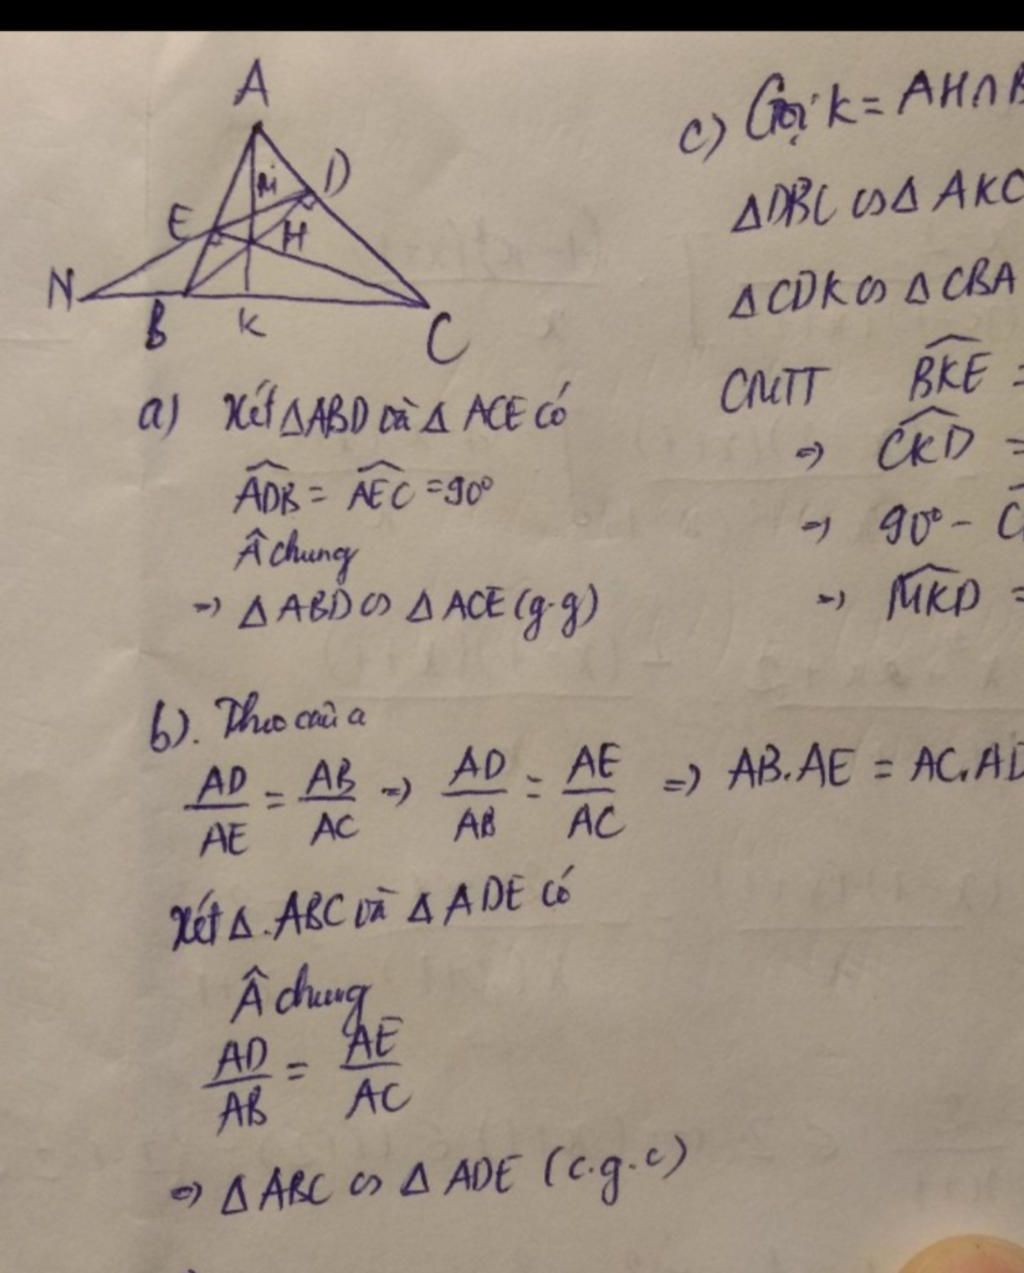 A
D
M
E
H
N
B
K
C
a) Xét ΔABD và Δ ACE có
ADB̂ = AEĈ = 90°
Â chung
=> Δ ABD ∽ Δ ACE (g.g)
b). Theo câu a
AD/AE = AB/AC => AD/AB = AE/AC => AB.AE = AC.AD
Xét Δ.ABC và Δ ADE có
Â chung
AD/AB = AE/AC
=> Δ ABC ∽ Δ ADE (c.g.c)
c) Gọi K = AH∩B
ΔDBC ∽ Δ AKC
ΔCDK ∽ ΔCBA
CMTT BKÊ =
=> CKD̂ =
=> 90° - C
=> MKD̂ =